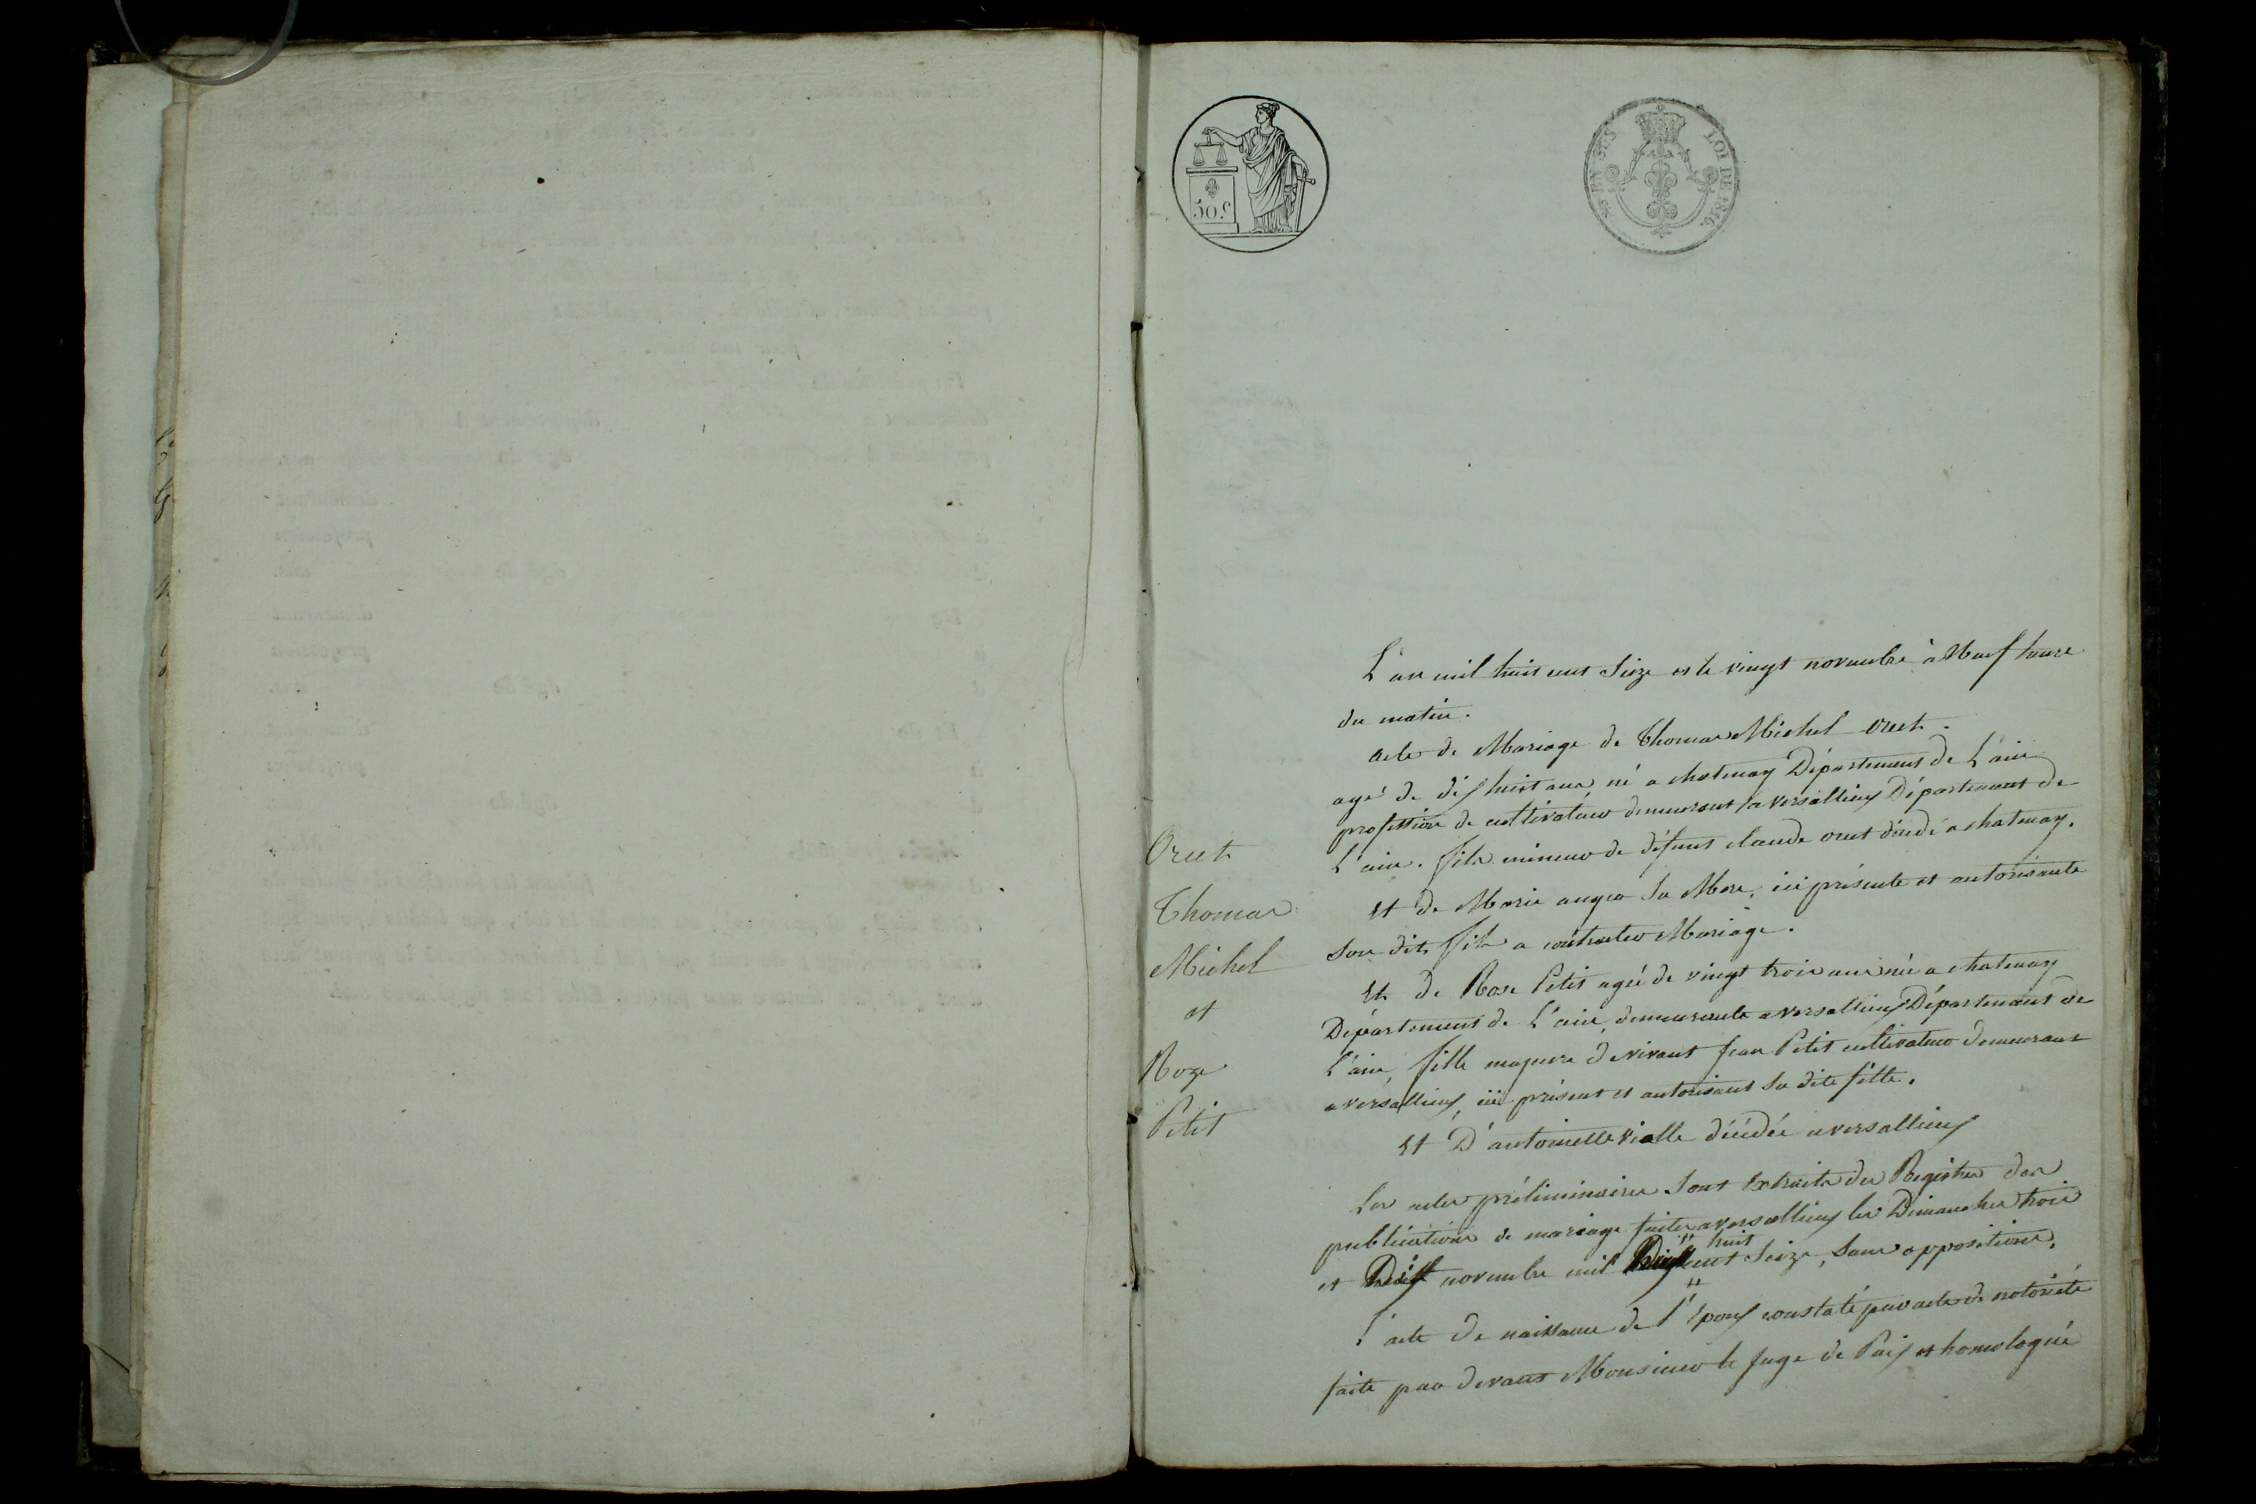 50 C.
EN SUS LOI DE 1816.
L'an mil huit cent Seize et le vingt novembre à Neuf heure
du matin.
acte de Mariage de Thomas Michel Oret.
agé de dix huit ans, né a chatenay Département de L'ain
profession de cultivateur demeurant a versallieux Département de
L'ain. fils mineur de défunt claude oret décédé a chatenay.
Et de Marie sa Mere, ici présente et autorisante
Son dit fils a contracter Mariage.
Et de Rose Petit agée de vingt trois ans née a chatenay
Département de L'ain, demeurante a versallieux Département de
L'ain, fille majeure de vivant Jean Petit cultivateur demeurant
a versallieux, ici présent et autorisant sa dite fille.
Et D'antoinette Vialle décédée a versallieux
Les actes préliminaires Sont Extraits des Registres des
publications de mariage faites a versallieux les Dimanches trois
et Dix novembre mil huit cent Seize, Sans opposition.
L'acte de naissance de l'Epoux constaté par acte de notoriété
faite par devant Monsieur le Juge de Paix et homologué
Oret
Thomas
Michel
et
Roze
Petit